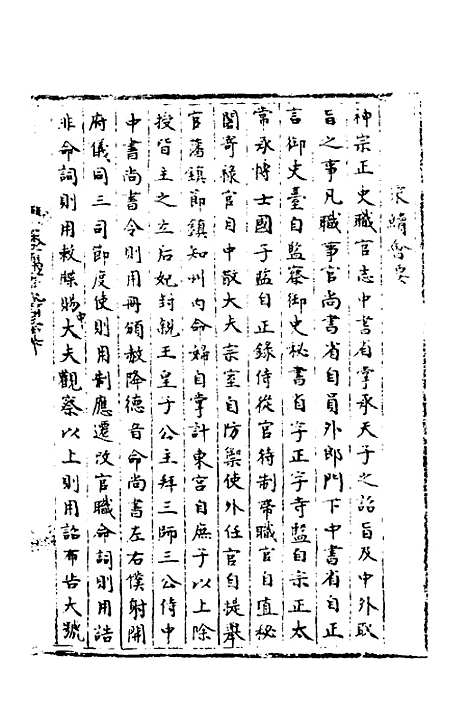 宋續會要
神宗正史職官志中書省掌承天子之詔旨及中外取
旨之事凡職事官尚書省自員外郎門下中書省自正
言御史臺自監察御史秘書省自正字寺監自宗正太
常丞博士國子監自正錄侍從官待制帶職官自直秘
閣寄祿官自中散大夫宗室自防禦使外任官自提舉
官藩鎮節鎮知州內命婦自掌計東宮自庶子以上除
授皆主之立后妃封親王皇子公主拜三師三公侍中
中書尚書令則用冊頒赦降德音命尚書左右僕射開
府儀同三司節度使則用制應遷改官職命詞則用誥
非命詞則用敕牒賜中大夫觀察以上則用詔布告大號